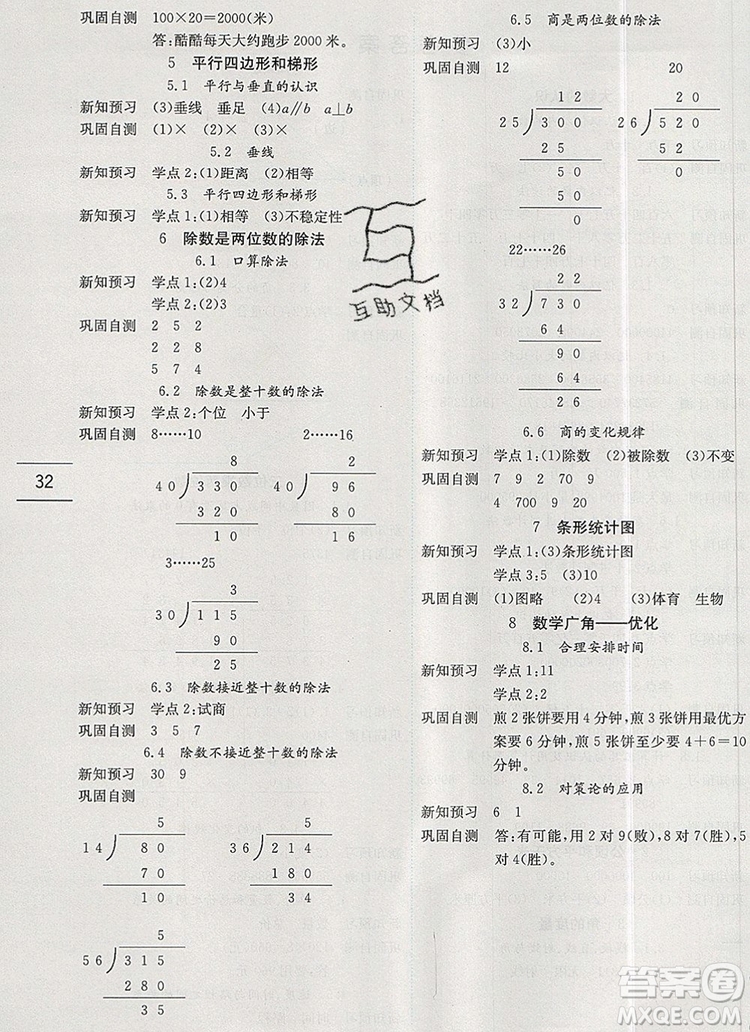 巩固自测 100×20=2000(米)
答:酷酷每天大约跑步 2000 米。
5 平行四边形和梯形
5.1 平行与垂直的认识
新知预习 (3)垂线 垂足 (4)a∥b a⊥b
巩固自测 (1)× (2)× (3)×
5.2 垂线
新知预习 学点 2:(1)距离 (2)相等
5.3 平行四边形和梯形
新知预习 学点 1:(1)相等 (3)不稳定性
6 除数是两位数的除法
6.1 口算除法
新知预习 学点 1:(2)4
学点 2:(2)3
巩固自测 2 5 2
2 2 8
5 7 4
6.2 除数是整十数的除法
新知预习 学点 2:个位 小于
巩固自测 8……10 2……16
8 2
40 330 40 96
320 80
10 16
3……25
3
30 115
90
25
6.3 除数接近整十数的除法
新知预习 学点 2:试商
巩固自测 3 5 7
6.4 除数不接近整十数的除法
新知预习 30 9
巩固自测
5 5
14 80 36 214
70 180
10 34
5
56 315
280
35
32
6.5 商是两位数的除法
新知预习 (3)小
巩固自测 12 20
12 20
25 300 26 520
25 52
50 0
50
0
22……26
22
32 730
64
90
64
26
6.6 商的变化规律
新知预习 学点 1:(1)除数 (2)被除数 (3)不变
巩固自测 7 9 2 70 9
4 700 9 20
7 条形统计图
新知预习 学点 1:(3)条形统计图
学点 3:5 (3)10
巩固自测 (1)图略 (2)4 (3)体育 生物
8 数学广角——优化
8.1 合理安排时间
新知预习 学点 1:11
学点 2:2
巩固自测 煎 2 张饼要用 4 分钟,煎 3 张饼用最优方
案要 6 分钟。煎 5 张饼至少要 4+6=10
分钟。
8.2 对策论的应用
新知预习 6 1
巩固自测 答:有可能,用 2 对 9(败),8 对 7(胜),5
对 4(胜)。
互助文档
答案圈
MXQE.COM